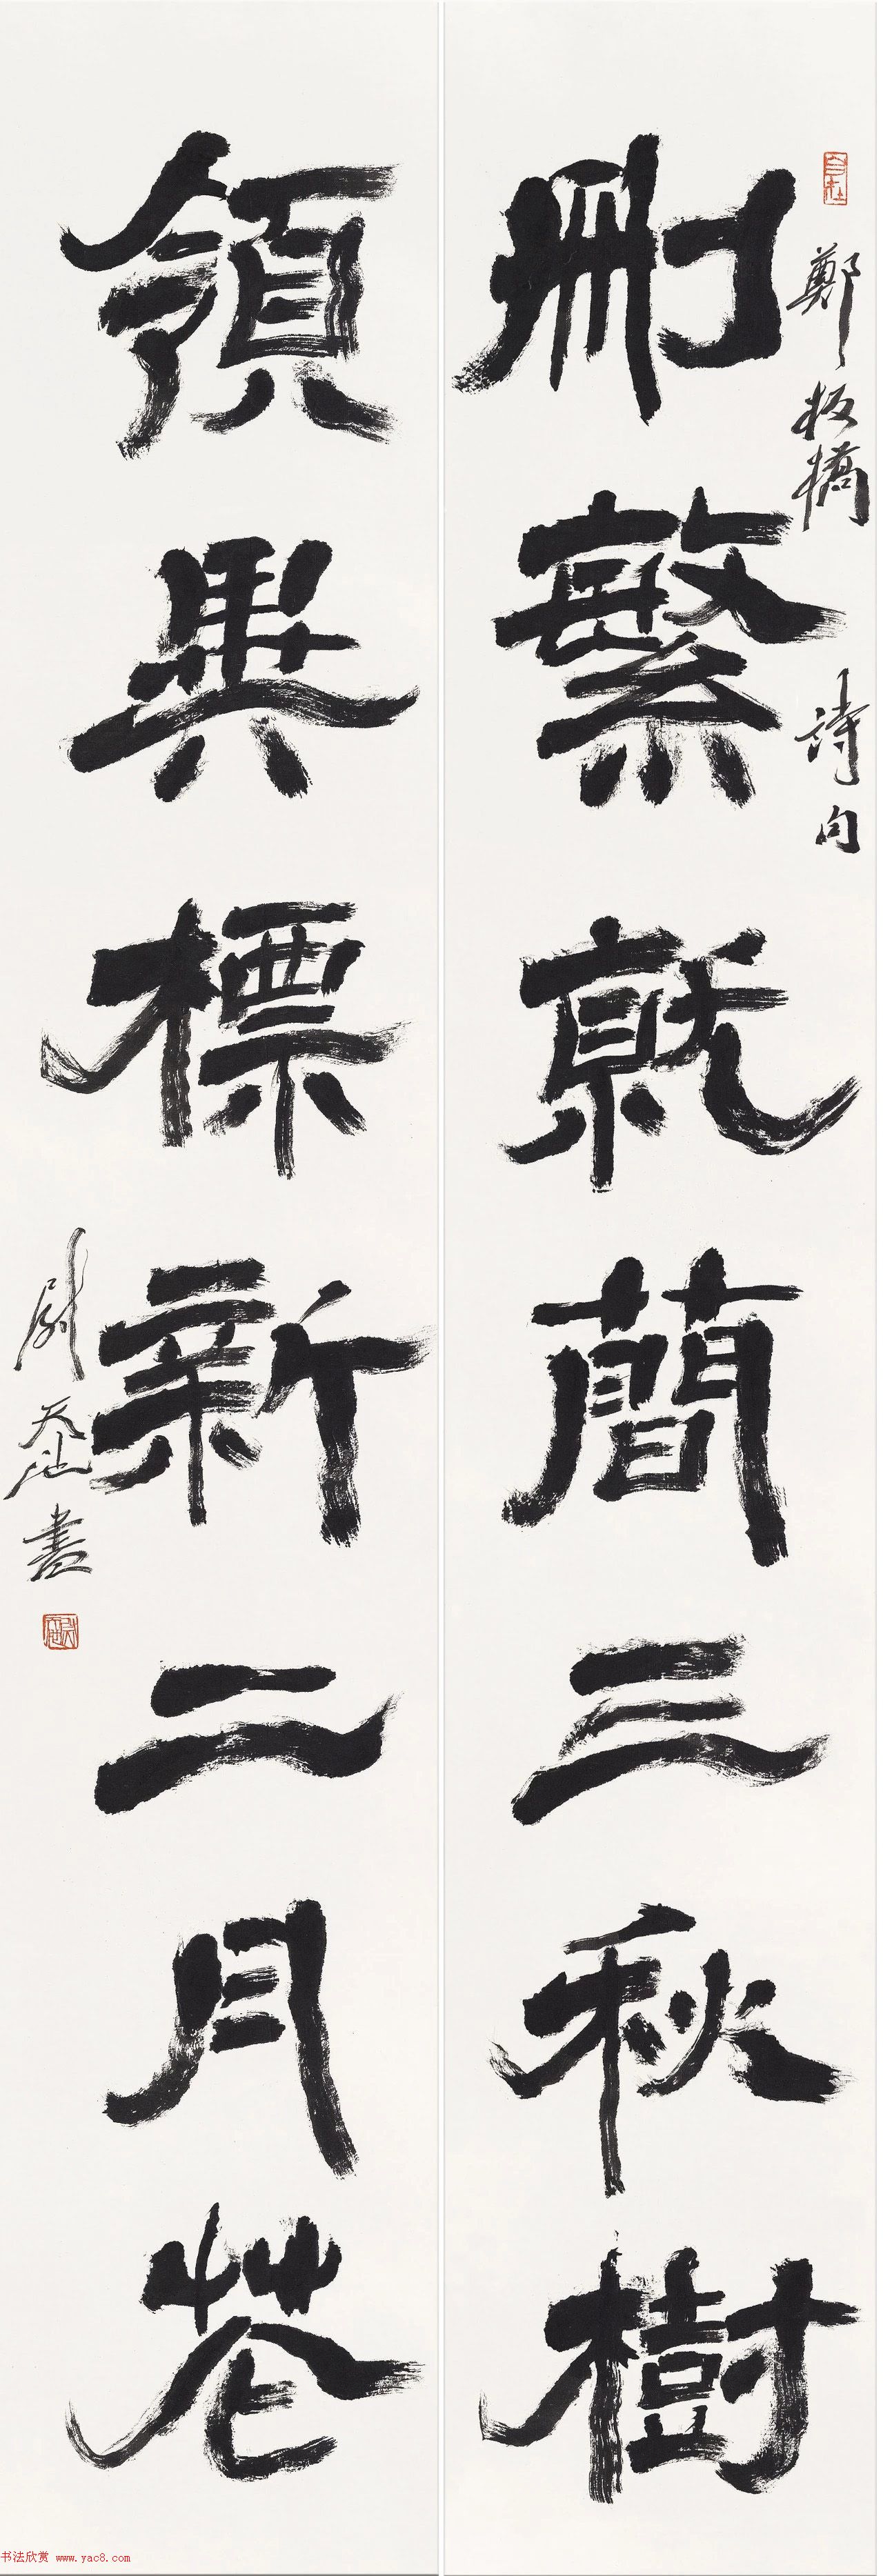 鄭板橋詩句
刪繁就簡三秋樹
領異標新二月花
尉天池書
书法欣赏 www.yac8.com